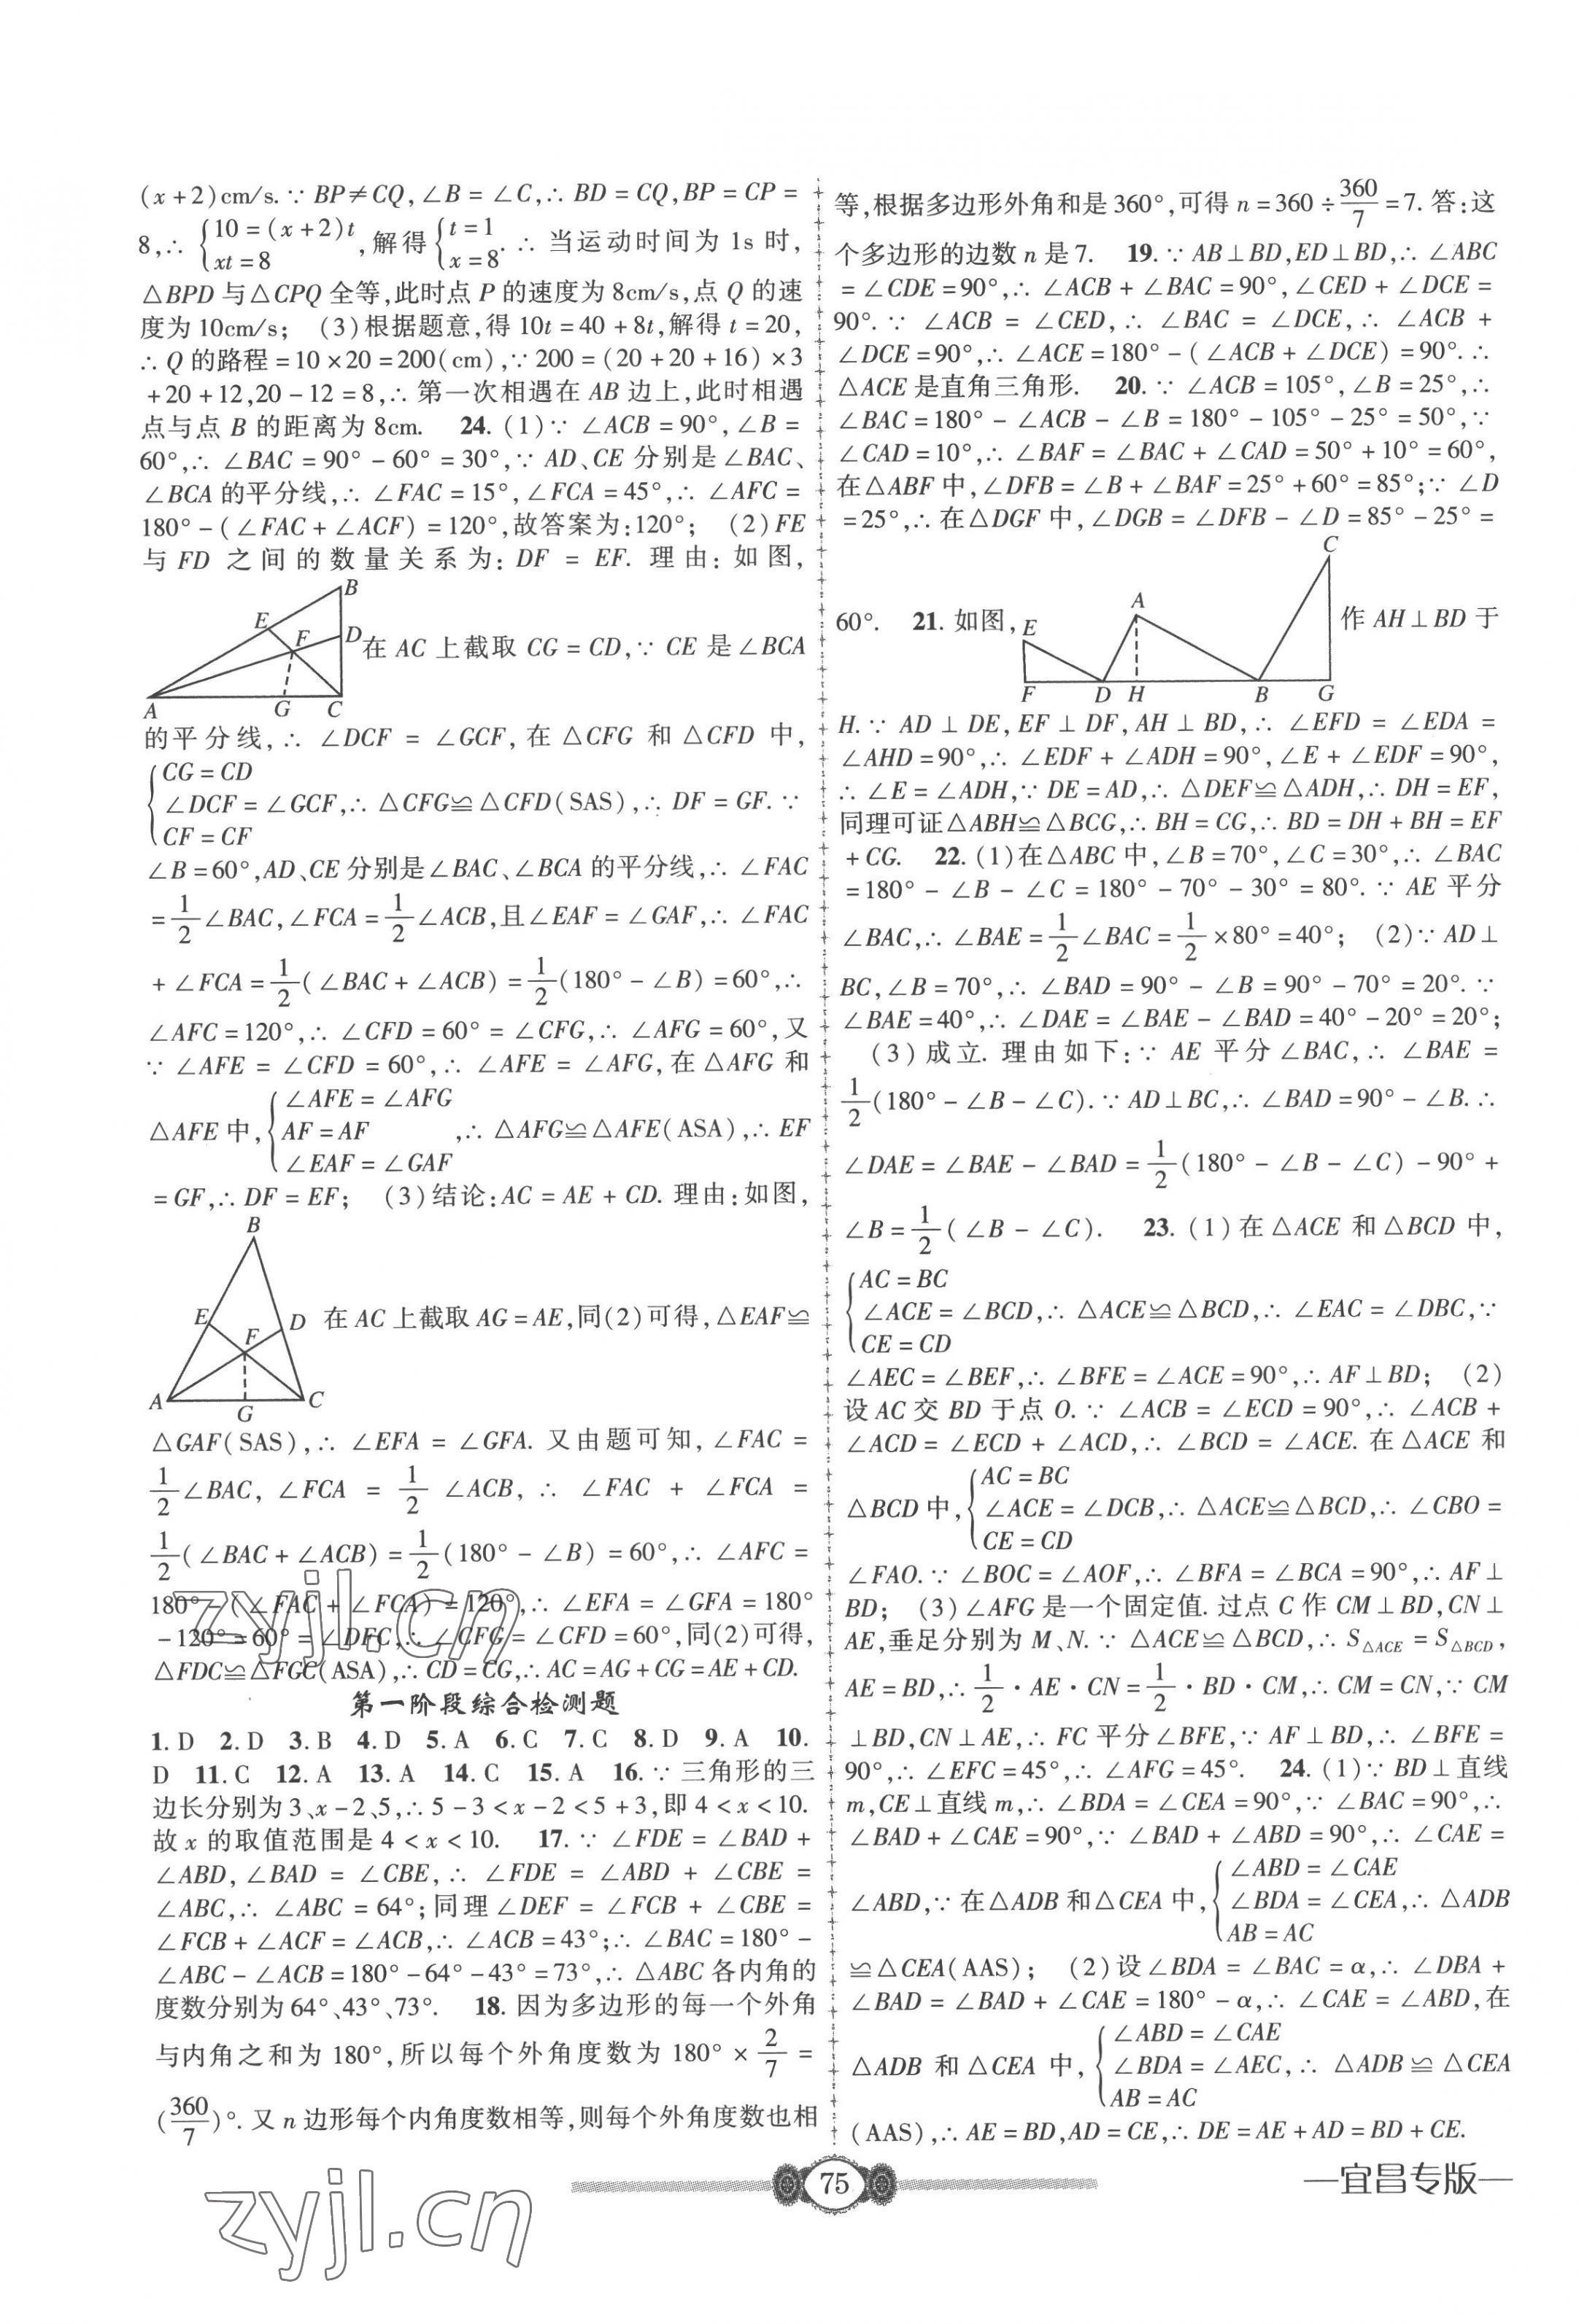 (x+2)cm/s.∵BP≠CQ,∠B=∠C,∴BD=CQ,BP=CP=
8,∴{10=(x+2)t
xt=8 ,解得{t=1
x=8.∴当运动时间为1s时,
△BPD与△CPQ全等,此时点P的速度为8cm/s,点Q的速
度为10cm/s; (3)根据题意,得10t=40+8t,解得t=20,
∴Q的路程=10×20=200(cm),∵200=(20+20+16)×3
+20+12,20-12=8,∴第一次相遇在AB边上,此时相遇
点与点B的距离为8cm. 24.(1)∵∠ACB=90°,∠B=
60°,∴∠BAC=90°-60°=30°,∵AD、CE分别是∠BAC、
∠BCA的平分线,∴∠FAC=15°,∠FCA=45°,∴∠AFC=
180°-(∠FAC+∠ACF)=120°,故答案为:120°; (2)FE
与FD之间的数量关系为:DF=EF.理由:如图,
B
E
F
D
A
G
C
在AC上截取CG=CD,∵CE是∠BCA
的平分线,∴∠DCF=∠GCF,在△CFG和△CFD中,
{CG=CD
∠DCF=∠GCF,∴△CFG≌△CFD(SAS),∴DF=GF.∵
CF=CF
∠B=60°,AD、CE分别是∠BAC、∠BCA的平分线,∴∠FAC
=1/2∠BAC,∠FCA=1/2∠ACB,且∠EAF=∠GAF,∴∠FAC
+∠FCA=1/2(∠BAC+∠ACB)=1/2(180°-∠B)=60°,∴
∠AFC=120°,∴∠CFD=60°=∠CFG,∴∠AFG=60°,又
∵∠AFE=∠CFD=60°,∴∠AFE=∠AFG,在△AFG和
△AFE中,{∠AFE=∠AFG
AF=AF
∠EAF=∠GAF ,∴△AFG≌△AFE(ASA),∴EF
=GF,∴DF=EF; (3)结论:AC=AE+CD.理由:如图,
B
E
D
F
A
G
C
在AC上截取AG=AE,同(2)可得,△EAF≌
△GAF(SAS),∴∠EFA=∠GFA.又由题可知,∠FAC=
1/2∠BAC,∠FCA=1/2∠ACB,∴∠FAC+∠FCA=
1/2(∠BAC+∠ACB)=1/2(180°-∠B)=60°,∴∠AFC=
180°-(∠FAC+∠FCA)=120°,∴∠EFA=∠GFA=180°
-120°=60°=∠DFC,∴∠CFG=∠CFD=60°,同(2)可得,
△FDC≌△FGC(ASA),∴CD=CG,∴AC=AG+CG=AE+CD.
第一阶段综合检测题
1.D 2.D 3.B 4.D 5.A 6.C 7.C 8.D 9.A 10.
D 11.C 12.A 13.A 14.C 15.A 16.∵三角形的三
边长分别为3、x-2、5,∴5-3<x-2<5+3,即4<x<10.
故x的取值范围是4<x<10. 17.∵∠FDE=∠BAD+
∠ABD,∠BAD=∠CBE,∴∠FDE=∠ABD+∠CBE=
∠ABC,∴∠ABC=64°;同理∠DEF=∠FCB+∠CBE=
∠FCB+∠ACF=∠ACB,∴∠ACB=43°;∴∠BAC=180°-
∠ABC-∠ACB=180°-64°-43°=73°,∴△ABC各内角的
度数分别为64°、43°、73°. 18.因为多边形的每一个外角
与内角之和为180°,所以每个外角度数为180°×2/7=
(360/7)°.又n边形每个内角度数相等,则每个外角度数也相
等,根据多边形外角和是360°,可得n=360÷360/7=7.答:这
个多边形的边数n是7. 19.∵AB⊥BD,ED⊥BD,∴∠ABC
=∠CDE=90°,∴∠ACB+∠BAC=90°,∠CED+∠DCE=
90°.∵∠ACB=∠CED,∴∠BAC=∠DCE,∴∠ACB+
∠DCE=90°,∴∠ACE=180°-(∠ACB+∠DCE)=90°.∴
△ACE是直角三角形. 20.∵∠ACB=105°,∠B=25°,∴
∠BAC=180°-∠ACB-∠B=180°-105°-25°=50°,∵
∠CAD=10°,∴∠BAF=∠BAC+∠CAD=50°+10°=60°,
在△ABF中,∠DFB=∠B+∠BAF=25°+60°=85°;∵∠D
=25°,∴在△DGF中,∠DGB=∠DFB-∠D=85°-25°=
60°. 21.如图,
C
A
E
F
D
H
B
G
作AH⊥BD于
H.∵AD⊥DE,EF⊥DF,AH⊥BD,∴∠EFD=∠EDA=
∠AHD=90°,∴∠EDF+∠ADH=90°,∠E+∠EDF=90°,
∴∠E=∠ADH,∵DE=AD,∴△DEF≌△ADH,∴DH=EF,
同理可证△ABH≌△BCG,∴BH=CG,∴BD=DH+BH=EF
+CG. 22.(1)在△ABC中,∠B=70°,∠C=30°,∴∠BAC
=180°-∠B-∠C=180°-70°-30°=80°.∵AE平分
∠BAC,∴∠BAE=1/2∠BAC=1/2×80°=40°; (2)∵AD⊥
BC,∠B=70°,∴∠BAD=90°-∠B=90°-70°=20°.∵
∠BAE=40°,∴∠DAE=∠BAE-∠BAD=40°-20°=20°;
(3)成立.理由如下:∵AE平分∠BAC,∴∠BAE=
1/2(180°-∠B-∠C).∵AD⊥BC,∴∠BAD=90°-∠B.∴
∠DAE=∠BAE-∠BAD=1/2(180°-∠B-∠C)-90°+
∠B=1/2(∠B-∠C). 23.(1)在△ACE和△BCD中,
{AC=BC
∠ACE=∠BCD,∴△ACE≌△BCD,∴∠EAC=∠DBC,∵
CE=CD
∠AEC=∠BEF,∴∠BFE=∠ACE=90°,∴AF⊥BD; (2)
设AC交BD于点O.∵∠ACB=∠ECD=90°,∴∠ACB+
∠ACD=∠ECD+∠ACD,∴∠BCD=∠ACE.在△ACE和
△BCD中,{AC=BC
∠ACE=∠DCB,∴△ACE≌△BCD,∴∠CBO=
CE=CD
∠FAO.∵∠BOC=∠AOF,∴∠BFA=∠BCA=90°,∴AF⊥
BD; (3)∠AFG是一个固定值.过点C作CM⊥BD,CN⊥
AE,垂足分别为M、N.∵△ACE≌△BCD,∴S△ACE=S△BCD,
AE=BD,∴1/2·AE·CN=1/2·BD·CM,∴CM=CN,∵CM
⊥BD,CN⊥AE,∴FC平分∠BFE,∵AF⊥BD,∴∠BFE=
90°,∴∠EFC=45°,∴∠AFG=45°. 24.(1)∵BD⊥直线
m,CE⊥直线m,∴∠BDA=∠CEA=90°,∵∠BAC=90°,∴
∠BAD+∠CAE=90°,∵∠BAD+∠ABD=90°,∴∠CAE=
∠ABD,∵在△ADB和△CEA中,{∠ABD=∠CAE
∠BDA=∠CEA,∴△ADB
AB=AC
≌△CEA(AAS); (2)设∠BDA=∠BAC=α,∴∠DBA+
∠BAD=∠BAD+∠CAE=180°-α,∴∠CAE=∠ABD,在
△ADB和△CEA中,{∠ABD=∠CAE
∠BDA=∠AEC,∴△ADB≌△CEA
AB=AC
(AAS),∴AE=BD,AD=CE,∴DE=AE+AD=BD+CE.
zyjl.cn
75
宜昌专版
zyjl.cn